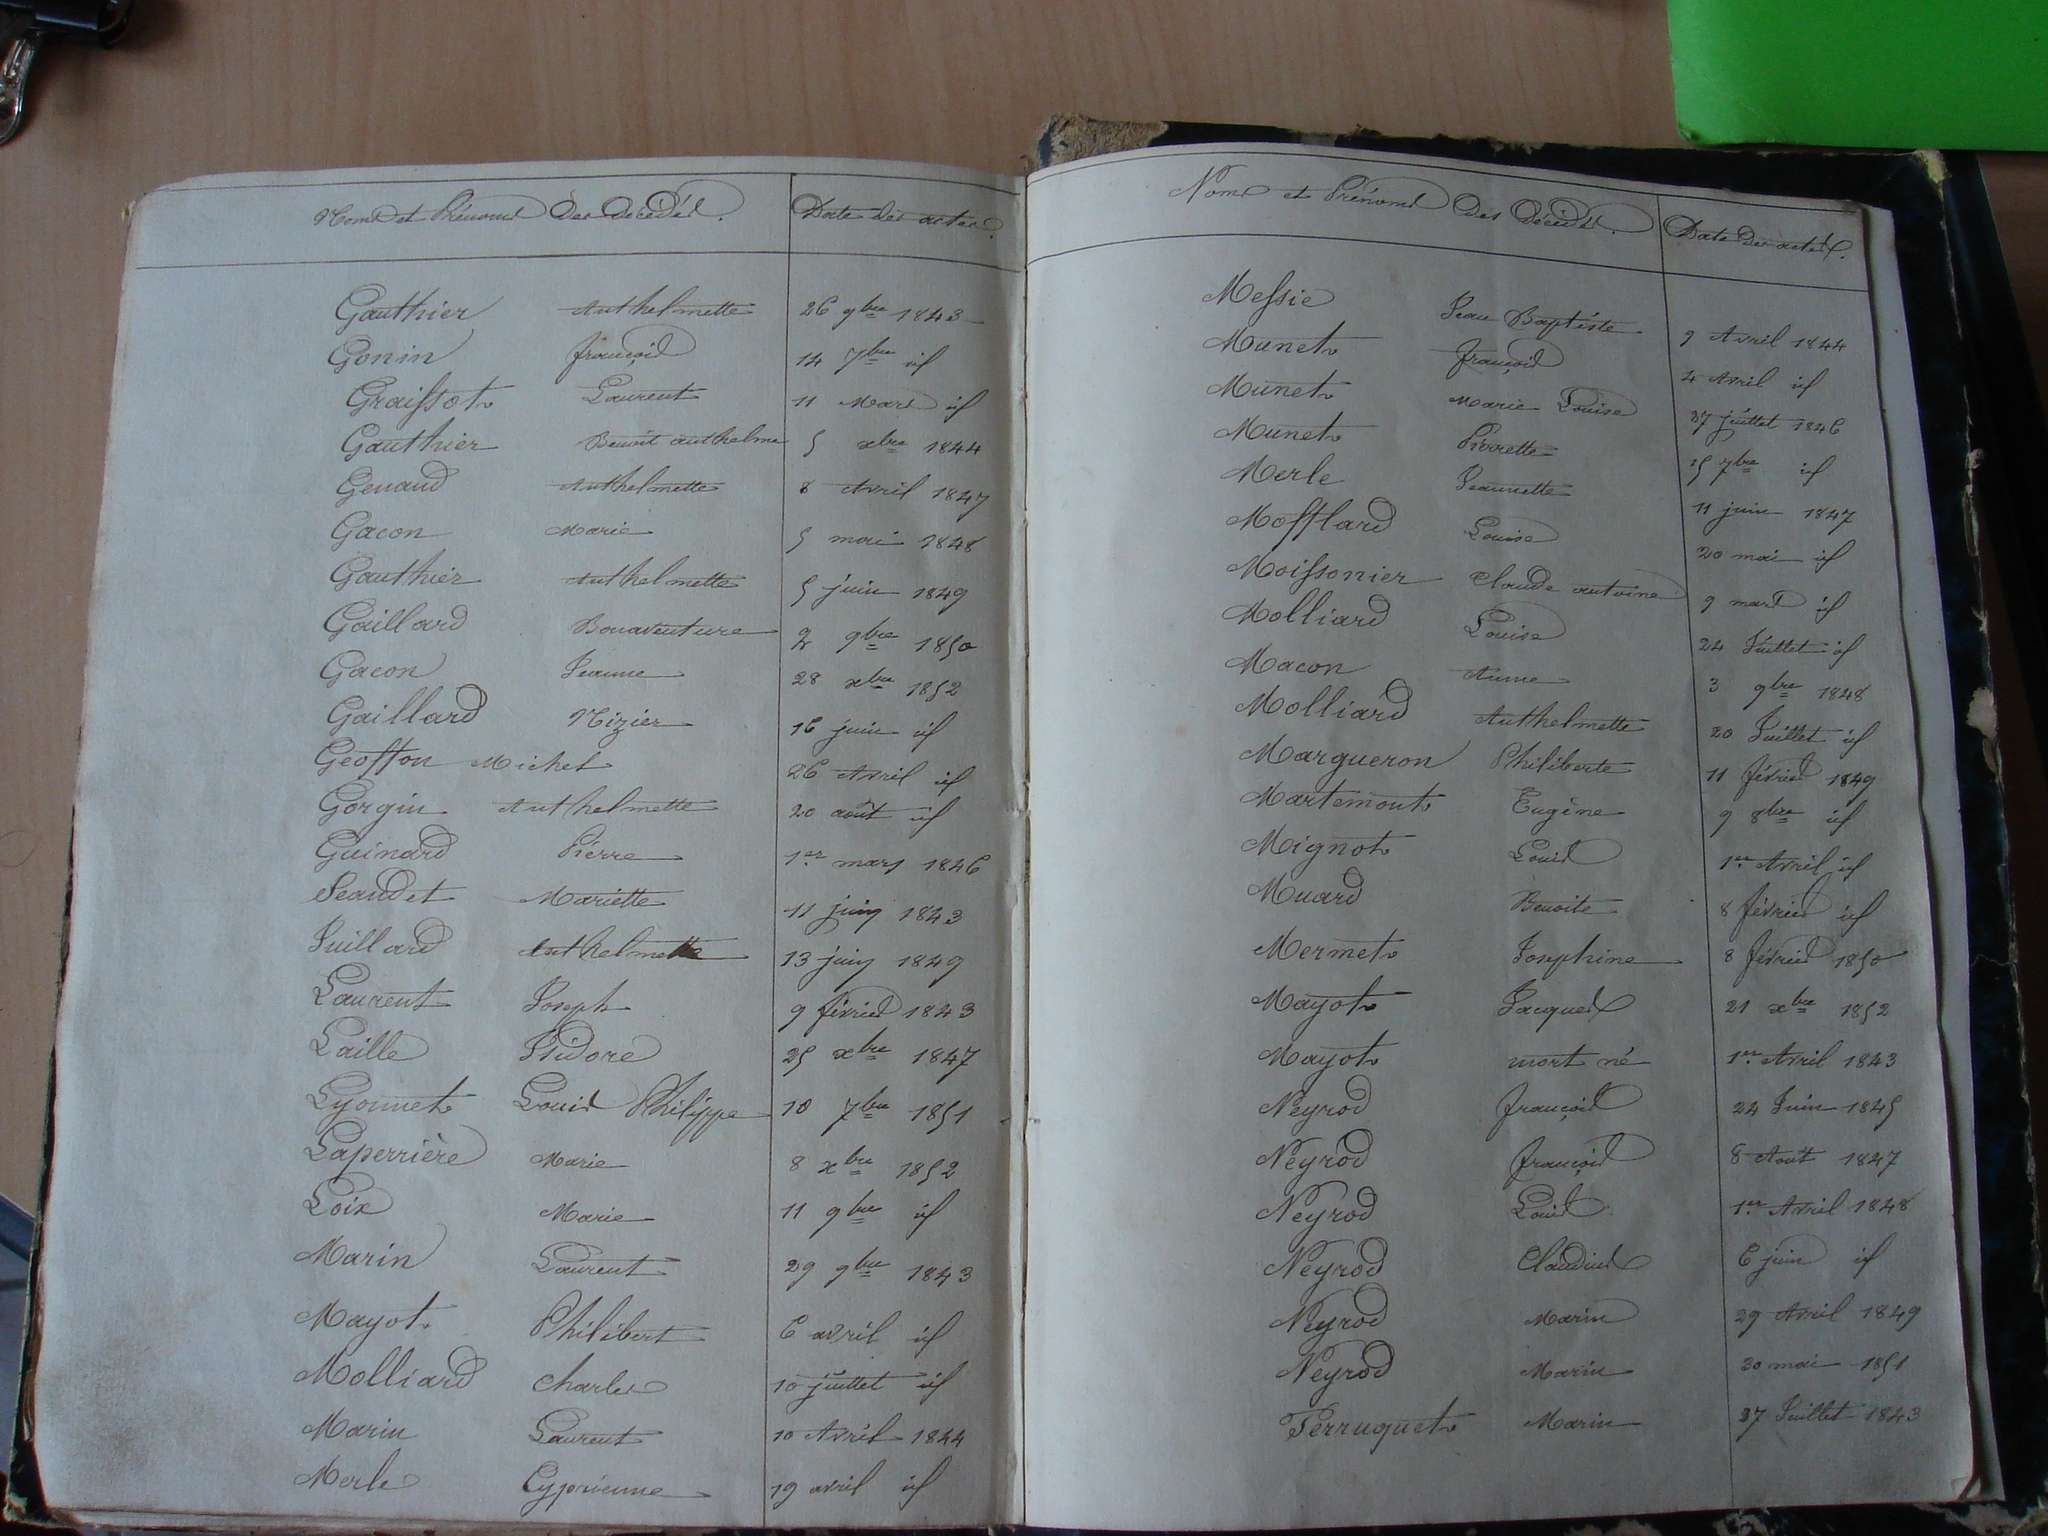 Noms et Prénoms des décédés. Date des actes.
Gauthier Anthelmette 26 9bre 1843
Gonin françois 14 7bre id
Graissot Laurent 11 Mars id
Gauthier Benoît anthelme 5 xbre 1844
Genaud Anthelmette 8 Avril 1847
Gacon Marie 5 mai 1848
Gauthier Anthelmette 5 juin 1849
Gaillard Bonaventure 2 9bre 1850
Gacon Jeanne 28 xbre 1852
Gaillard Nizier 16 juin id
Geoffon Michel 26 Avril id
Gorgin Anthelmette 20 août id
Guinard Pierre 1er mars 1846
Jeandet Mariette 11 juin 1843
Juillard Anthelmette 13 juin 1849
Laurent Joseph 9 février 1843
Laille Isidore 25 xbre 1847
Lyonnet Louis Philippe 10 7bre 1851
Laperrière Marie 8 xbre 1852
Loix Marie 11 9bre id
Marin Laurent 29 9bre 1843
Mayot Philibert 6 avril id
Molliard Charles 10 juillet id
Marin Laurent 10 Avril 1844
Merle Cyprienne 19 avril id
Noms et Prénoms des décédés. Date des actes.
Messie Jean Baptiste 9 Avril 1844
Munet françois 4 Avril id
Munet Marie Louise 27 juillet 1846
Munet Pierrette 15 7bre id
Merle Jeannette 11 juin 1847
Mofflard Louise 20 mai id
Moissonier Claude antoine 9 mars id
Molliard Louise 24 Juillet id
Macon Anne 3 9bre 1848
Molliard Anthelmette 20 Juillet id
Margueron Philiberte 11 février 1849
Martemont Eugène 9 8bre id
Mignot Louis 1er Avril id
Muard Benoite 8 février id
Mermet Josephine 8 février 1850
Mayot Jacques 21 xbre 1852
Mayot mort né 1er Avril 1843
Neyrod françois 24 Juin 1845
Neyrod françois 8 Août 1847
Neyrod Louis 1er Avril 1848
Neyrod Claudius 6 juin id
Neyrod Marin 29 Avril 1849
Neyrod Marin 30 mai 1851
Perruquet Marin 27 Juillet 1843